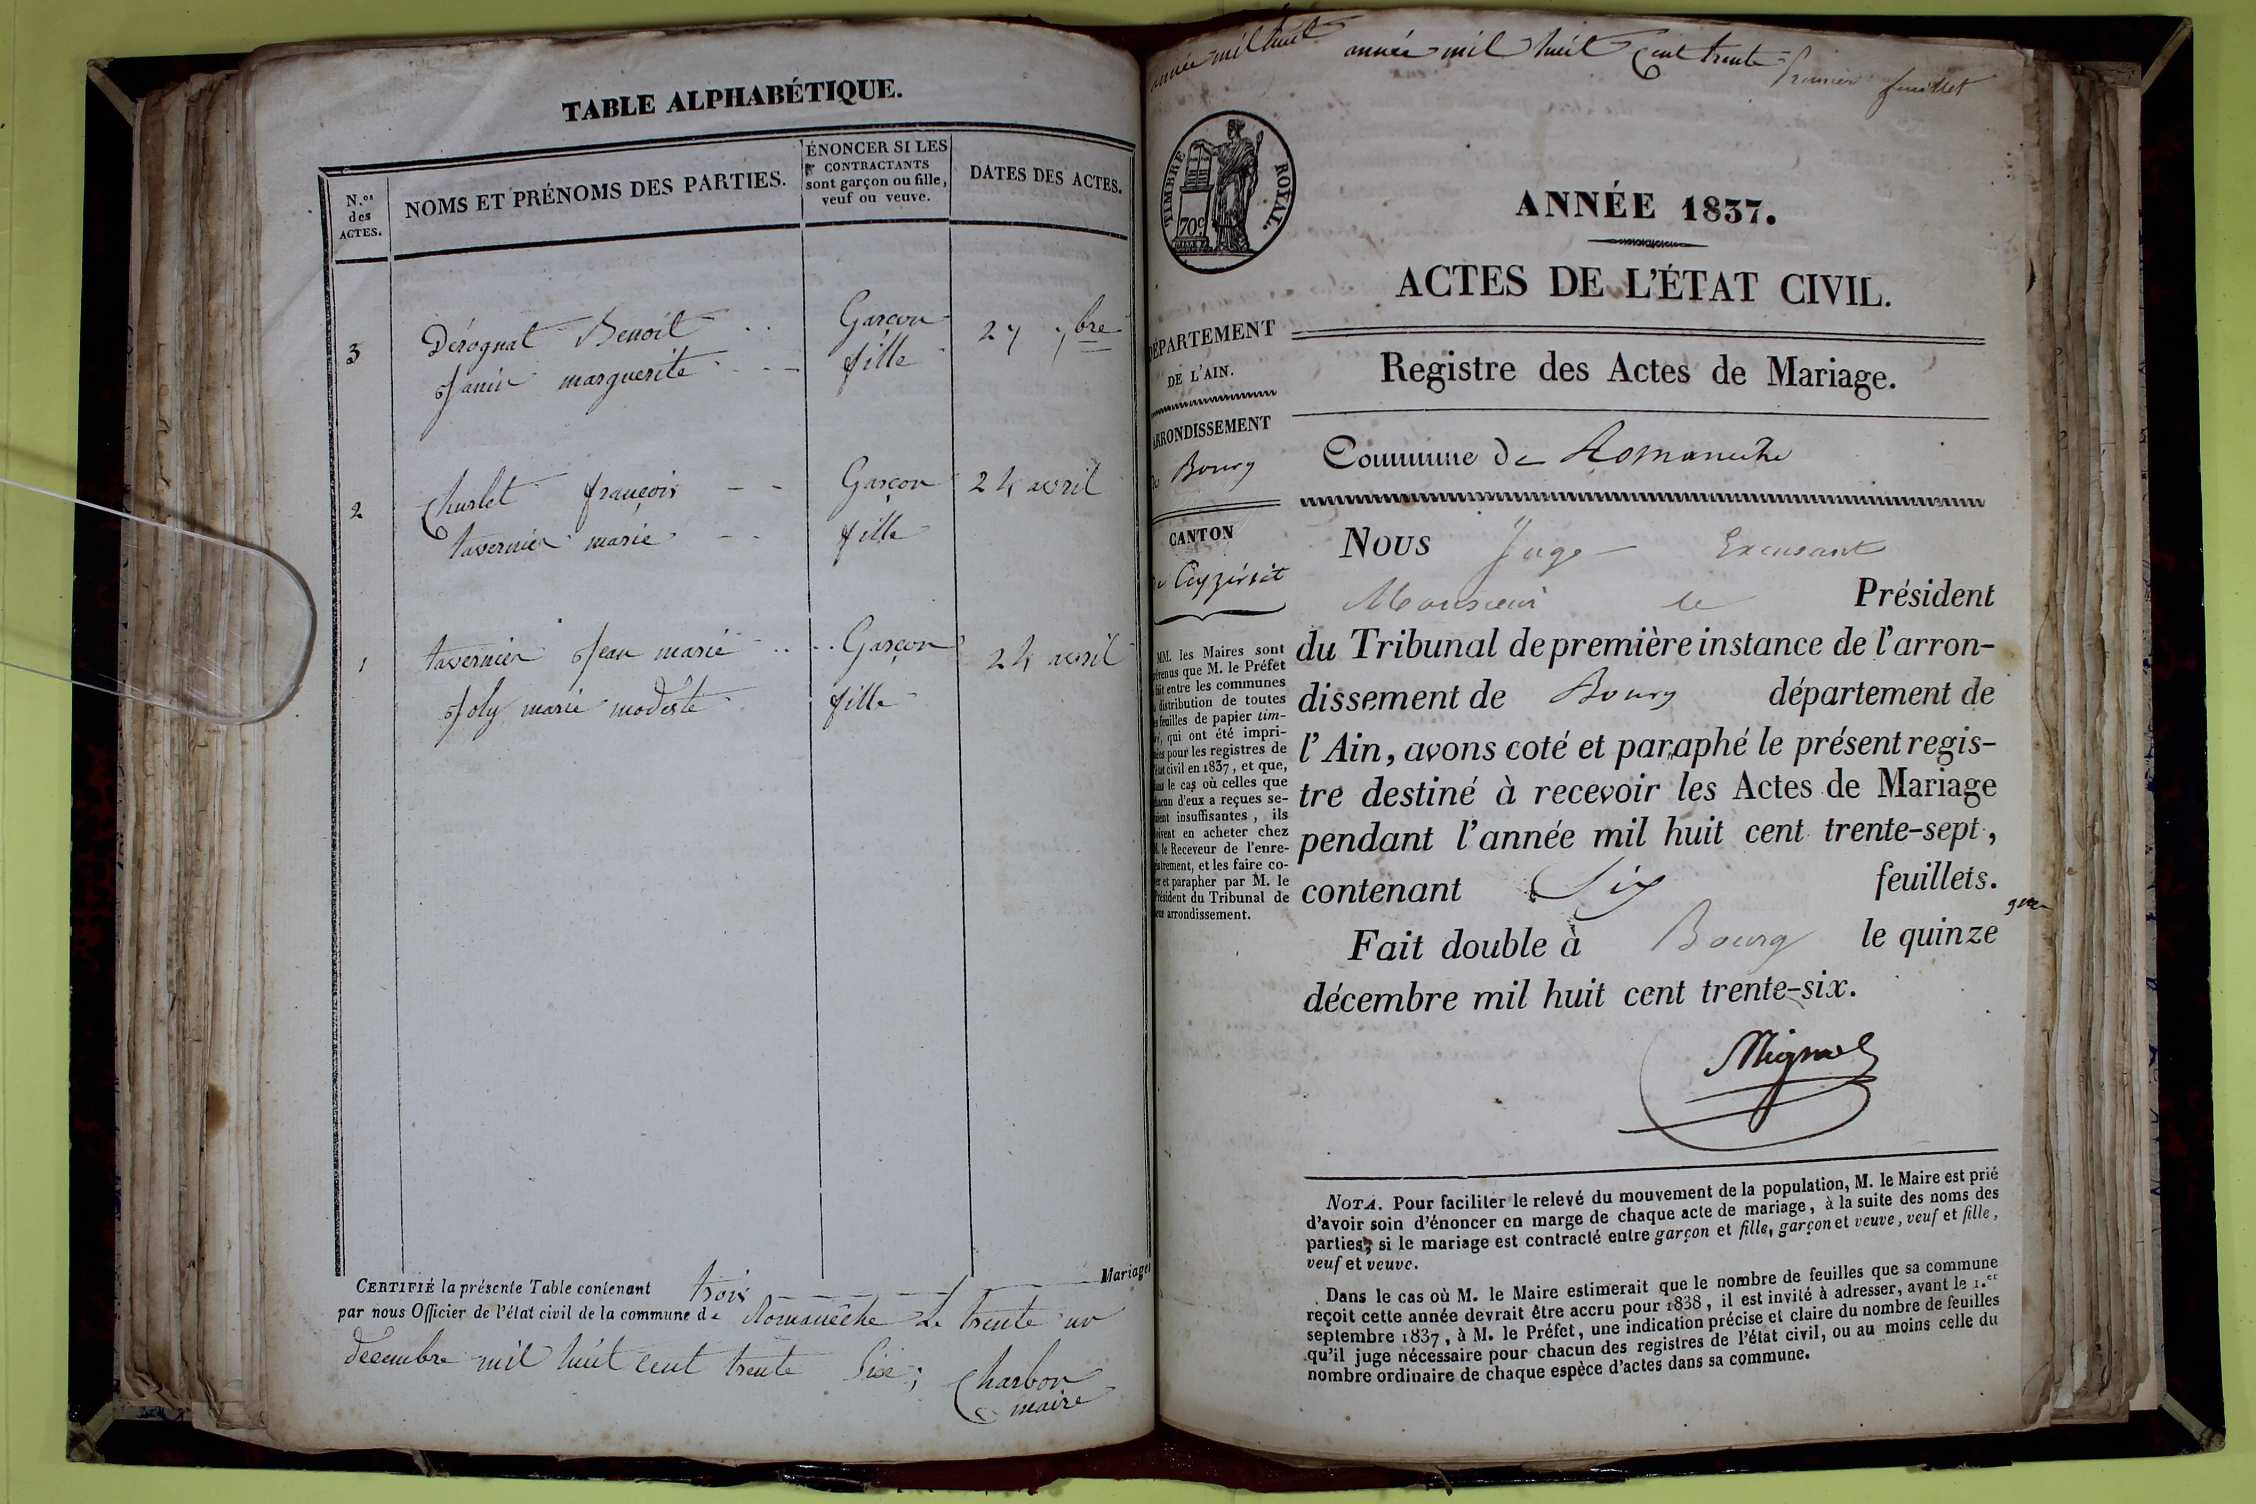 TABLE ALPHABÉTIQUE.
N.os des ACTES.
NOMS ET PRÉNOMS DES PARTIES.
ÉNONCER SI LES
CONTRACTANTS
sont garçon ou fille,
veuf ou veuve.
DATES DES ACTES.
3 Dérognat Benoit Garçon 27 7bre
Janin marguerite fille
2 Churlet françois Garçon 24 avril
tavernier marie fille
1 tavernier Jean marie Garçon 24 avril
Joly marie modeste fille
CERTIFIÉ la présente Table contenant trois Mariages
par nous Officier de l'état civil de la commune de Romanêche Le trente un
décembre mil huit cent trente Six;
Charbon
maire
année mil huit
année mil huit Cent trente
Premier feuillet
TIMBRE ROYAL.
70c
ANNÉE 1837.
ACTES DE L'ÉTAT CIVIL.
Registre des Actes de Mariage.
DÉPARTEMENT
DE L'AIN.
ARRONDISSEMENT
de Bourg
CANTON
de Ceyzériat
MM. les Maires sont
prévenus que M. le Préfet
a fait entre les communes
la distribution de toutes
les feuilles de papier tim-
bré, qui ont été impri-
mées pour les registres de
l'état civil en 1837, et que,
dans le cas où celles que
chacun d'eux a reçues se-
raient insuffisantes, ils
doivent en acheter chez
M. le Receveur de l'enre-
gistrement, et les faire co-
ter et parapher par M. le
Président du Tribunal de
leur arrondissement.
Commune de Romanêche
Nous Juge Excusant
Monsieur le Président
du Tribunal de première instance de l'arron-
dissement de Bourg département de
l'Ain, avons coté et paraphé le présent regis-
tre destiné à recevoir les Actes de Mariage
pendant l'année mil huit cent trente-sept,
contenant Six feuillets.
Fait double à Bourg le quinze
décembre mil huit cent trente-six.
NOTA. Pour faciliter le relevé du mouvement de la population, M. le Maire est prié
d'avoir soin d'énoncer en marge de chaque acte de mariage, à la suite des noms des
parties, si le mariage est contracté entre garçon et fille, garçon et veuve, veuf et fille,
veuf et veuve.
Dans le cas où M. le Maire estimerait que le nombre de feuilles que sa commune
reçoit cette année devrait être accru pour 1838, il est invité à adresser, avant le 1.er
septembre 1837, à M. le Préfet, une indication précise et claire du nombre de feuilles
qu'il juge nécessaire pour chacun des registres de l'état civil, ou au moins celle du
nombre ordinaire de chaque espèce d'actes dans sa commune.